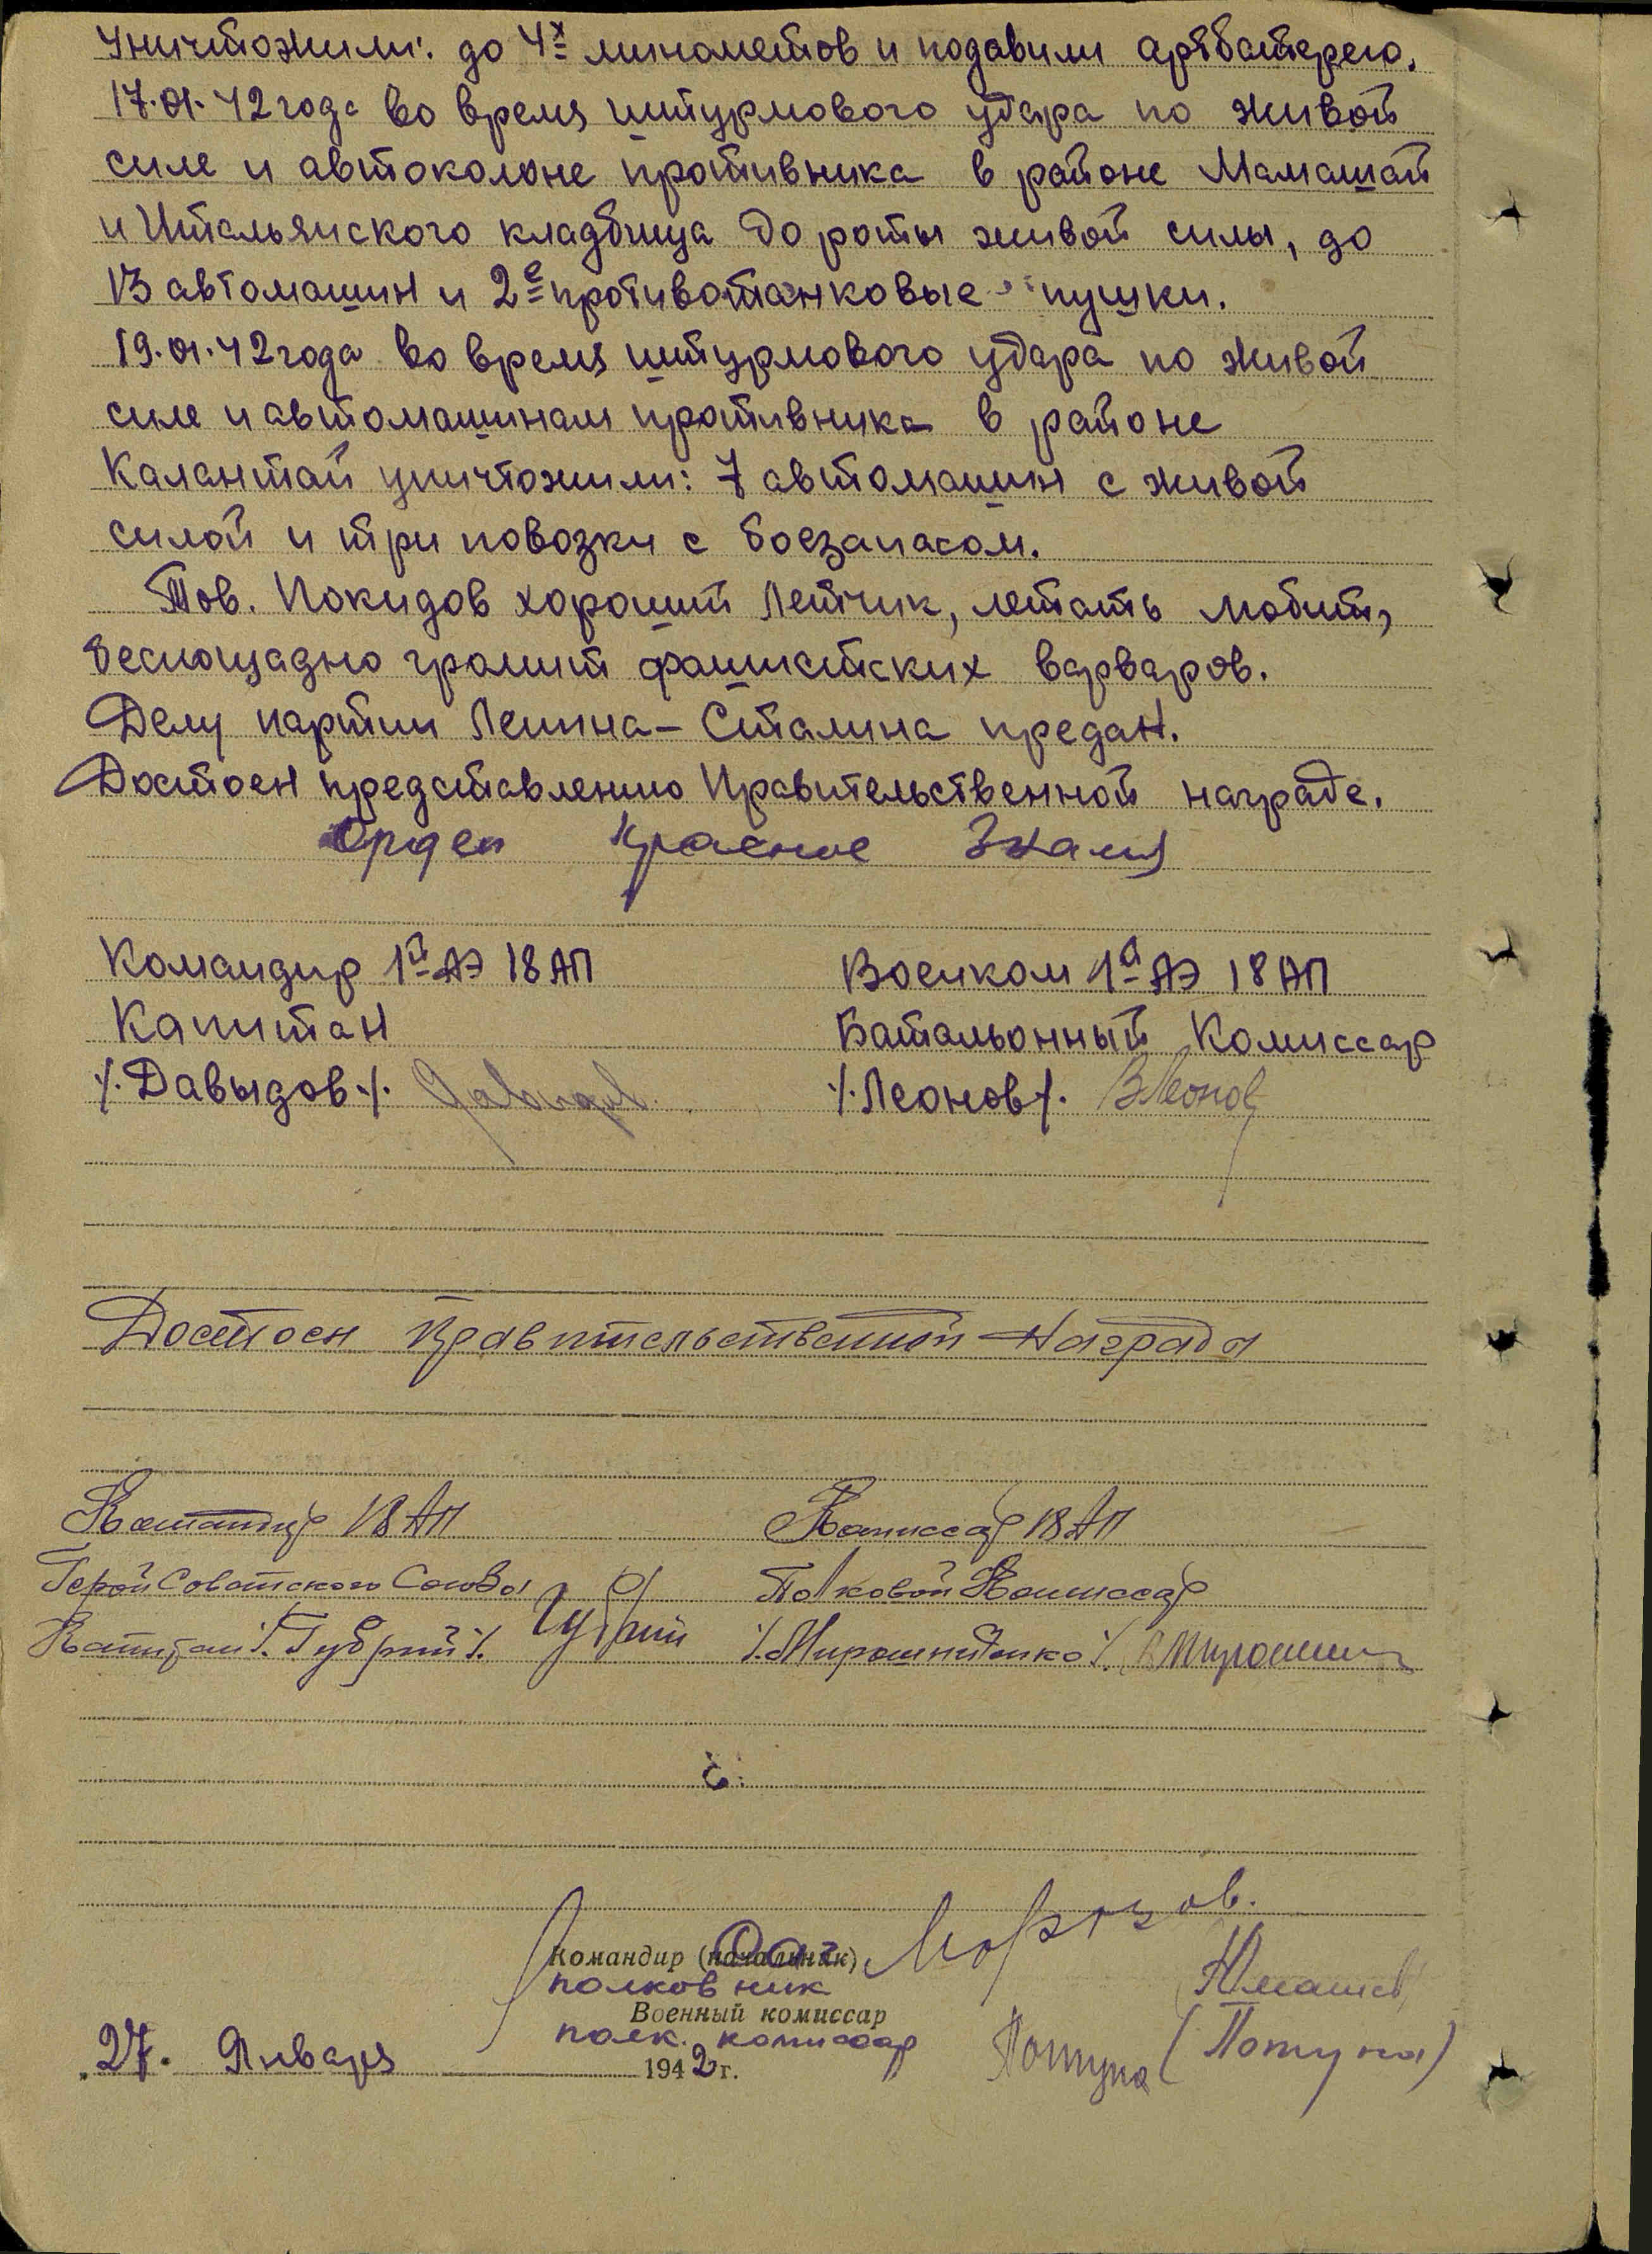 Уничтожили: до 4х минометов и подавили артбатерею.
17.01.42 года во время штурмового удара по живой
силе и автоколоне противника в районе Мамашай
и Итальянского кладбища до роты живой силы, до
13 автомашин и 2е противотанковые пушки.
19.01.42 года во время штурмового удара по живой
силе и автомашинам противника в районе
Калантай уничтожили: 7 автомашин с живой
силой и три повозки с боезапасом.
Тов. Покидов хороший летчик, летать любит,
беспощадно громит фашистских варваров.
Делу партии Ленина – Сталина предан.
Достоен представлению Правительственной награде.
Орден Красное Знамя
Командир 1й АЭ 18 АП
Военком 1й АЭ 18 АП
Капитан
Батальонный Комиссар
/.Давыдов/. Давыдов
/.Леонов/. ВЛеонов
Достоен Правительственной Награды
Командир 18 АП
Комиссар 18 АП
Герой Советского Союза
Полковой Комиссар
Капитан /.Губрий/. Губрий
/.Мирошниченко/.
Командир (начальник)
полковник
Военный комиссар
полк. комиссар
27. Января 1942 г.